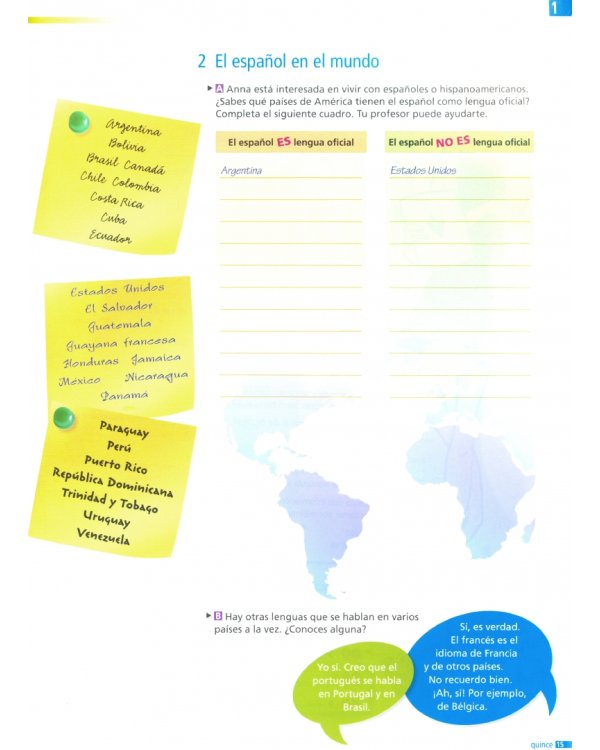 1
2 El español en el mundo
A Anna está interesada en vivir con españoles o hispanoamericanos.
¿Sabes qué países de América tienen el español como lengua oficial?
Completa el siguiente cuadro. Tu profesor puede ayudarte.
Argentina
Bolivia
Brasil Canadá
Chile Colombia
Costa Rica
Cuba
Ecuador
Estados Unidos
El Salvador
Guatemala
Guayana francesa
Honduras Jamaica
México Nicaragua
Panamá
Paraguay
Perú
Puerto Rico
República Dominicana
Trinidad y Tobago
Uruguay
Venezuela
El español ES lengua oficial
Argentina
El español NO ES lengua oficial
Estados Unidos
B Hay otras lenguas que se hablan en varios
países a la vez. ¿Conoces alguna?
Yo sí. Creo que el
portugués se habla
en Portugal y en
Brasil.
Sí, es verdad.
El francés es el
idioma de Francia
y de otros países.
No recuerdo bien.
¡Ah, sí! Por ejemplo,
de Bélgica.
quince 15